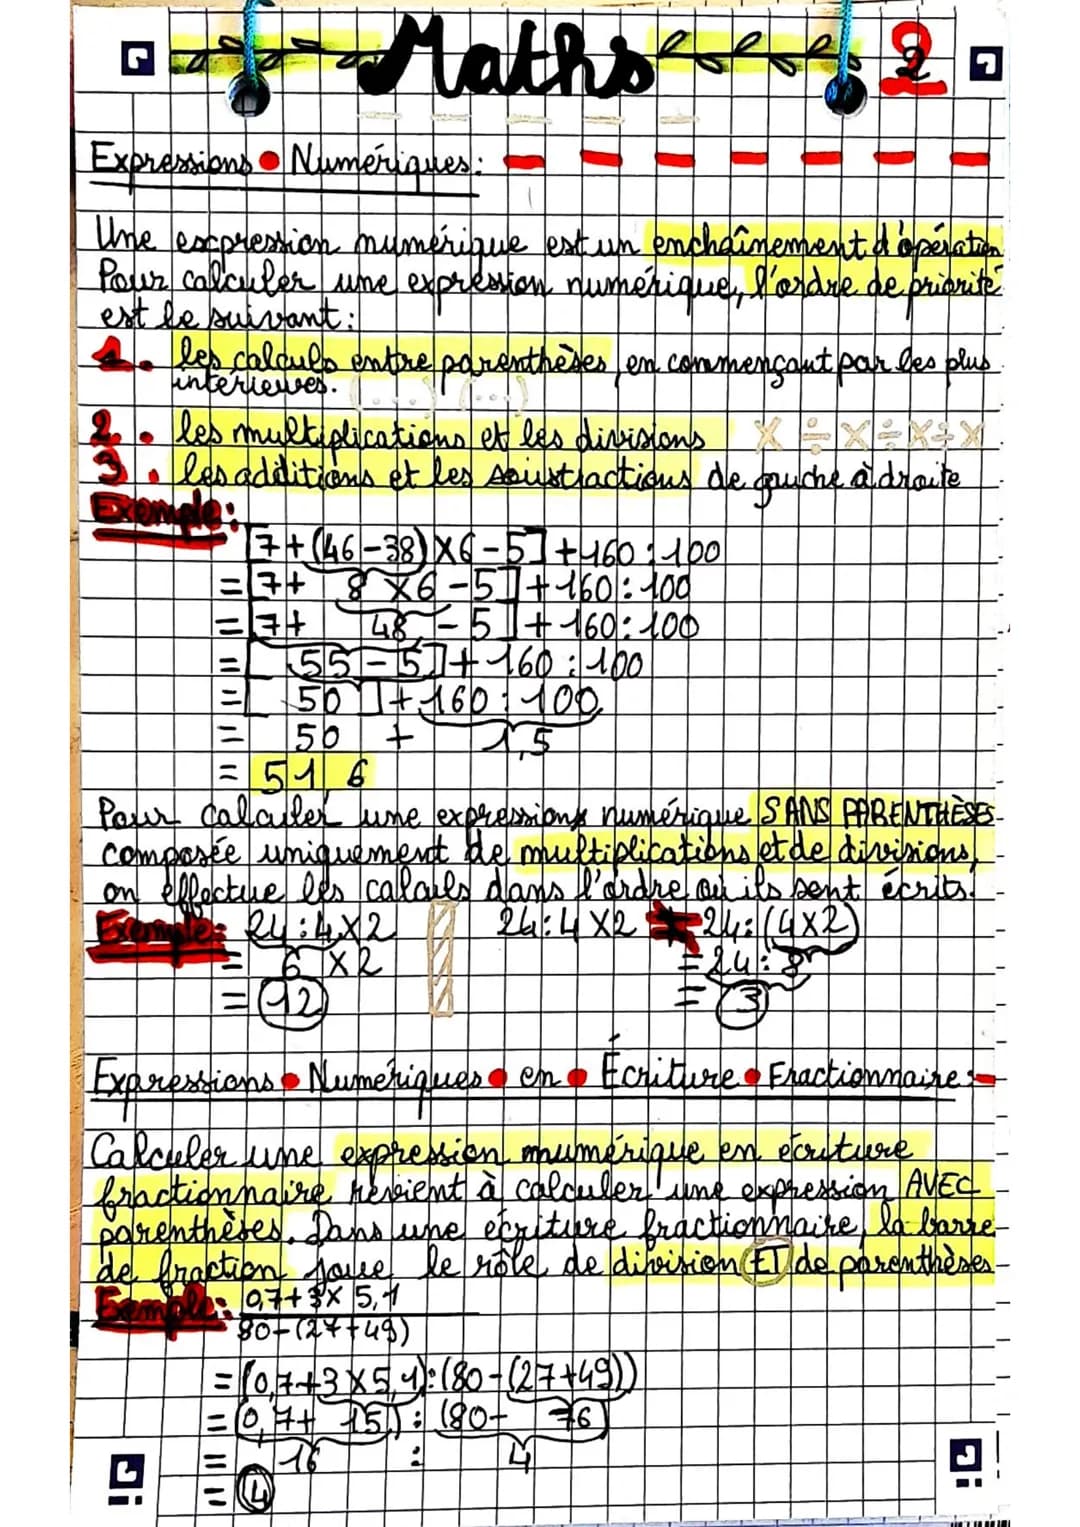 Maths
2
Expressions • Numériques:
Une expression numérique est un enchaînement d'opération
Pour calculer une expression numérique, l'ordre de priorité
est le suivant:
1. les calculs entre parenthèses, en commençant par les plus
intérieures. (...) (...)
2. les multiplications et les divisions × ÷ × ÷ × ÷ ×
3. les additions et les soustractions de gauche à droite
Exemple:
[7+(46-38)×6-5]+160:100
=[7+ 8 ×6-5]+160:100
=[7+ 48 -5]+160:100
=[ 55-5]+160:100
=[ 50 ]+160:100
= 50 + 1,5
= 51 6
Pour calculer une expression numérique SANS PARENTHÈSES
composée uniquement de multiplications et de divisions,
on effectue les calculs dans l'ordre où ils sont écrits.
Exemple: 24:4×2 24:4×2 ≠ 24:(4×2)
= 6 ×2 =24:8
= 12 = 3
Expressions • Numériques • en • Écriture • Fractionnaire:
Calculer une expression numérique en écriture
fractionnaire revient à calculer une expression AVEC
parenthèses. Dans une écriture fractionnaire, la barre
de fraction joue le rôle de division ET de parenthèses
Exemple: 0,7+3×5,1
80-(27+49)
=(0,7+3×5,1):(80-(27+49))
=(0,7+ 15,):(80- 76)
= 16 : 4
= 4